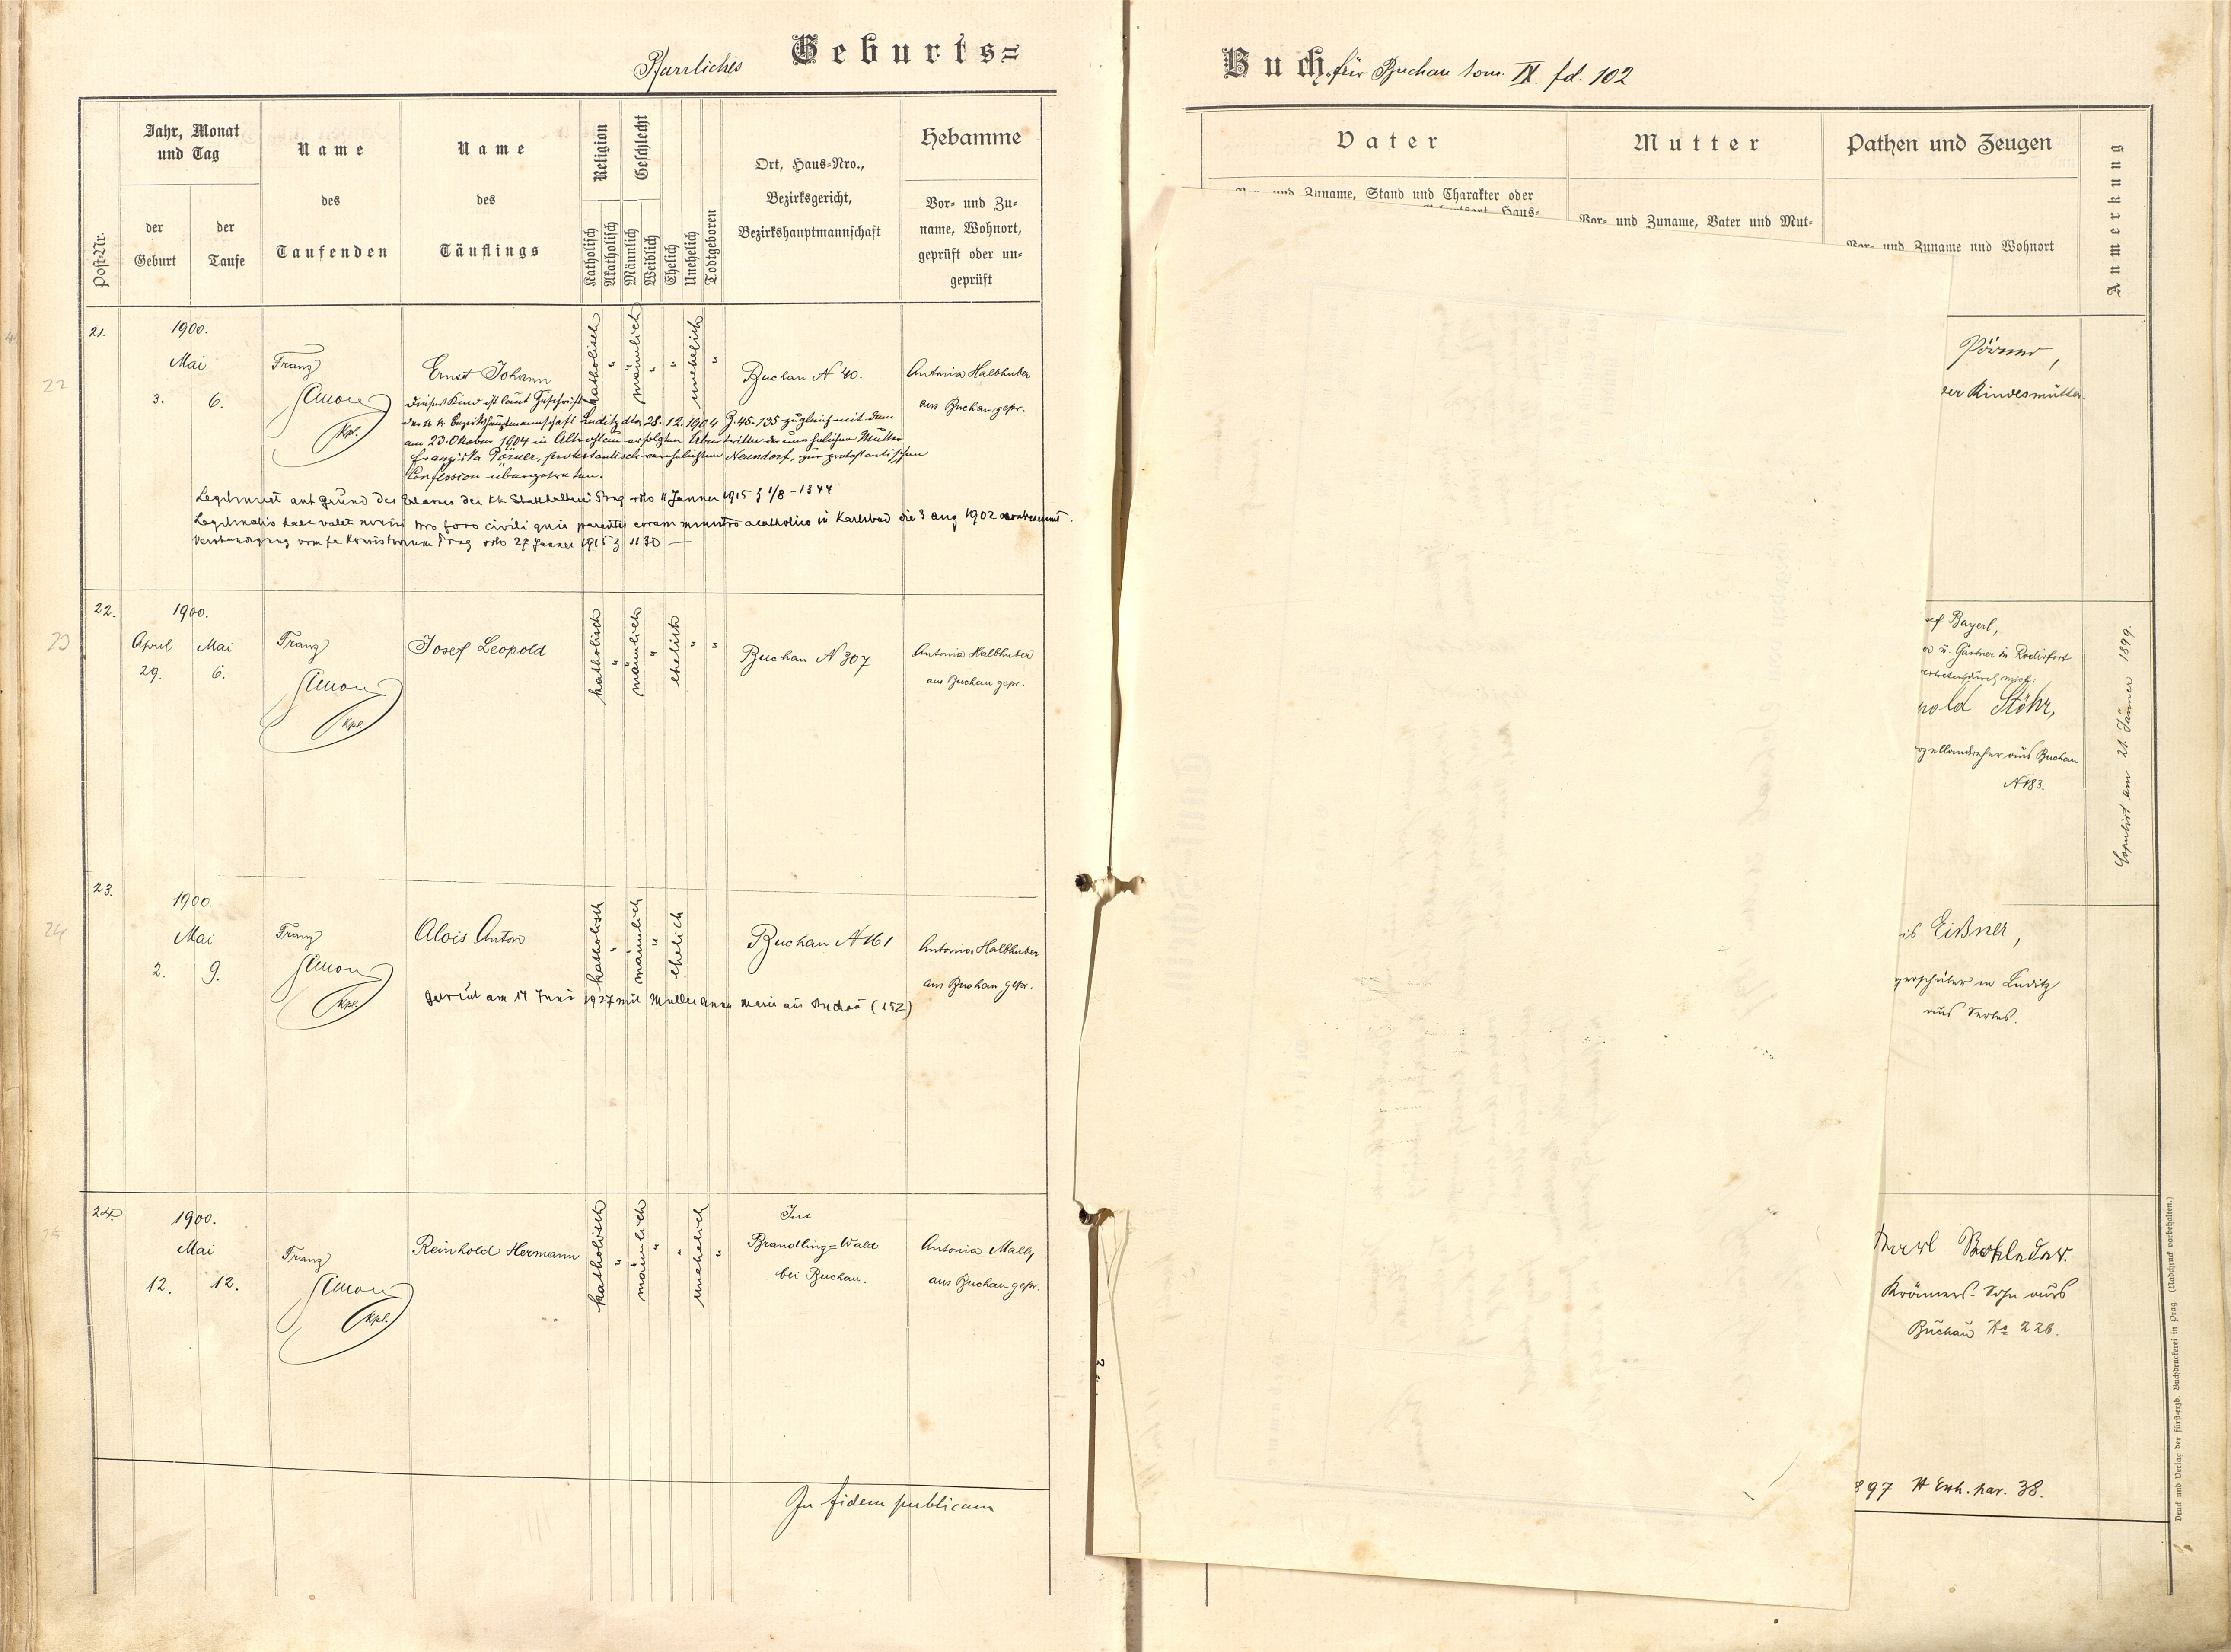 Pfarrliches Geburts=
Buch für Buchau tom. IX. fol. 102
Post-Nr.
Jahr, Monat
und Tag
der
Geburt
der
Taufe
Name
des
Taufenden
Name
des
Täuflings
Religion
Katholisch
Akatholisch
Geschlecht
Männlich
Weiblich
Ehelich
Unehelich
Todtgeboren
Ort, Haus-Nro.,
Bezirksgericht,
Bezirkshauptmannschaft
Hebamme
Vor- und Zu-
name, Wohnort,
geprüft oder un-
geprüft
Vater
und Zuname, Stand und Charakter oder
Haus-
Mutter
Vor- und Zuname, Vater und Mut-
Pathen und Zeugen
Vor- und Zuname und Wohnort
Anmerkung
21.
1900.
Mai
3. 6.
Franz
Simon
Kpl.
Ernst Johann
katholisch " männlich " " unehelich "
Buchau N 40.
Antonia Halbhuber
aus Buchau gepr.
Dieses Kind ist laut Zuschrift
der k k Bezirkshauptmannschaft Luditz dto 28. 12. 1904 Z. 45.135 zugleich mit dem
am 23. Oktober 1904 in erfolgten der unehelichen Mutter
Franziska Pörner, protestantisch verehelichten Neundorf, zur protestantischen
Konfession übergetreten.
Legitimiert auf Grund des Erlasses der kk Statthalterei Prag dto 11 Jänner 1915 Z 1/8 - 1344
Legitimatio haec valet pro foro civili quia parentes coram ministro acatholico in Karlsbad die 3 aug 1902
Verständigung vom fe Konsistorium Prag dto 27 Jänner 1915 Z 1130 —
Pörner,
der Kindesmutter.
22
22.
1900.
April Mai
29. 6.
Franz
Simon
Kpl.
Josef Leopold
katholisch " männlich " ehelich " "
Buchau N 307
Antonia Halbhuber
aus Buchau gepr.
sef Bayerl,
u. Gärtner in Rodisfort
vertreten durch mich:
pold Stöhr,
rzellandreher aus Buchau
N 183.
Copulirt am 21. Jänner 1899.
23
23.
1900.
Mai
2. 9.
Franz
Simon
Kpl.
Alois Anton
katholisch " männlich " ehelich
Buchau N 161
Antonia Halbhuber
aus Buchau gepr.
getraut am 14 Juni 1927 mit Müller Anna Maria aus Buchau (152)
is Eißner,
gerschüler in Luditz
aus
24
24.
1900.
Mai
12. 12.
Franz
Simon
Kpl.
Reinhold Hermann
katholisch " männlich " " unehelich "
Im
Brandling=Wald
bei Buchau.
Antonia Mally
aus Buchau gepr.
Karl
Krämers-Sohn aus
Buchau No 226.
25
897 N Erh. par. 38.
In fidem publicam
Druck und Verlag der fürst-erzb. Buchdruckerei in Prag. (Nachdruck vorbehalten.)